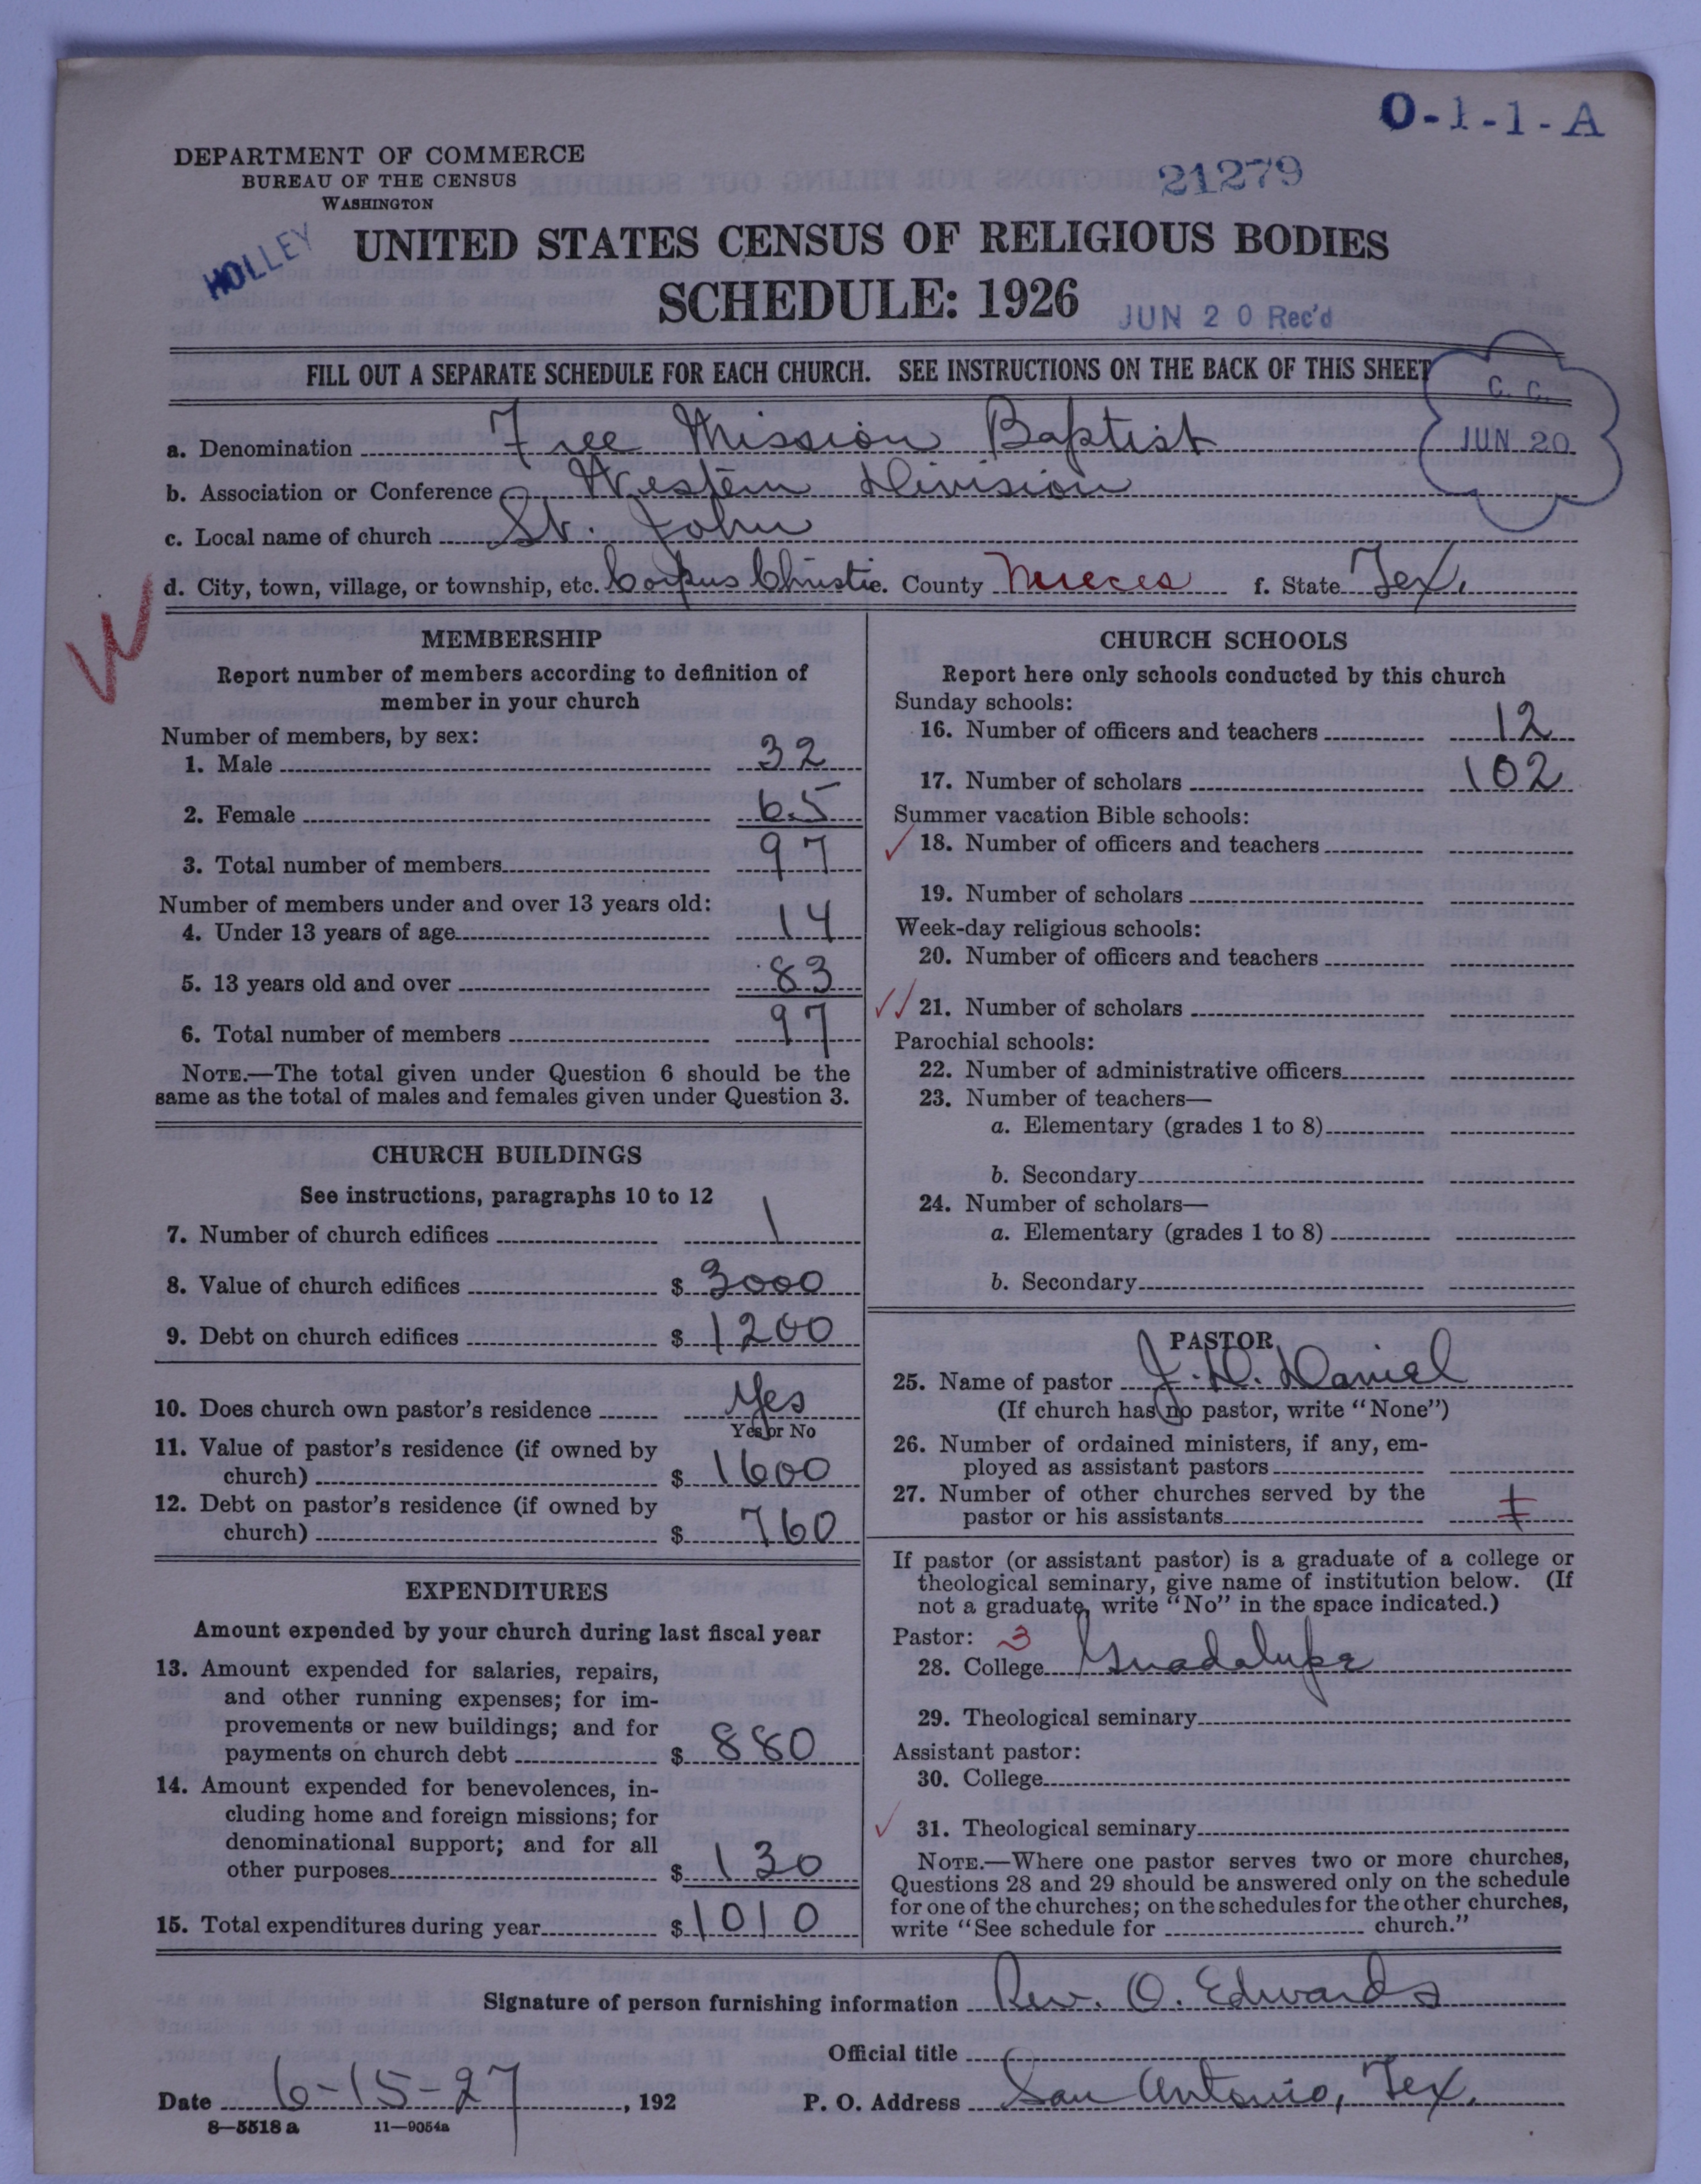 O-1-1-A
DEPARTMENT OF COMMERCE
BUREAU OF THE CENSUS
WASHINGTON
21279
HOLLEY
UNITED STATES CENSUS OF RELIGIOUS BODIES
SCHEDULE: 1926
JUN 20 Rec'd
FILL OUT A SEPARATE SCHEDULE FOR EACH CHURCH. SEE INSTRUCTIONS ON THE BACK OF THIS SHEET
C. C.
JUN 20
a. Denomination Free Mission Baptist
b. Association or Conference Western Division
c. Local name of church St. John
d. City, town, village, or township, etc. Corpus Christie. County Nueces f. State Tex.
MEMBERSHIP
Report number of members according to definition of
member in your church
Number of members, by sex:
1. Male 32
2. Female 65
3. Total number of members 97
Number of members under and over 13 years old:
4. Under 13 years of age 14
5. 13 years old and over 83
6. Total number of members 97
NOTE.—The total given under Question 6 should be the
same as the total of males and females given under Question 3.
CHURCH BUILDINGS
See instructions, paragraphs 10 to 12
7. Number of church edifices 1
8. Value of church edifices $ 3000
9. Debt on church edifices $ 1200
10. Does church own pastor's residence Yes
Yes or No
11. Value of pastor's residence (if owned by
church) $ 1600
12. Debt on pastor's residence (if owned by
church) $ 760
EXPENDITURES
Amount expended by your church during last fiscal year
13. Amount expended for salaries, repairs,
and other running expenses; for im-
provements or new buildings; and for
payments on church debt $ 880
14. Amount expended for benevolences, in-
cluding home and foreign missions; for
denominational support; and for all
other purposes $ 130
15. Total expenditures during year $ 1010
CHURCH SCHOOLS
Report here only schools conducted by this church
Sunday schools:
16. Number of officers and teachers 12
17. Number of scholars 102
Summer vacation Bible schools:
18. Number of officers and teachers
19. Number of scholars
Week-day religious schools:
20. Number of officers and teachers
21. Number of scholars
Parochial schools:
22. Number of administrative officers
23. Number of teachers—
a. Elementary (grades 1 to 8)
b. Secondary
24. Number of scholars—
a. Elementary (grades 1 to 8)
b. Secondary
PASTOR
25. Name of pastor J. D. Daniel
(If church has no pastor, write "None")
26. Number of ordained ministers, if any, em-
ployed as assistant pastors
27. Number of other churches served by the
pastor or his assistants 1
If pastor (or assistant pastor) is a graduate of a college or
theological seminary, give name of institution below. (If
not a graduate, write "No" in the space indicated.)
Pastor: 3
28. College Guadalupe
29. Theological seminary
Assistant pastor:
30. College
31. Theological seminary
NOTE.—Where one pastor serves two or more churches,
Questions 28 and 29 should be answered only on the schedule
for one of the churches; on the schedules for the other churches,
write "See schedule for church."
Signature of person furnishing information Rev. O. Edwards
Official title
Date 6-15-27, 192 P. O. Address San Antonio, Tex.
8—5518 a 11—9054a